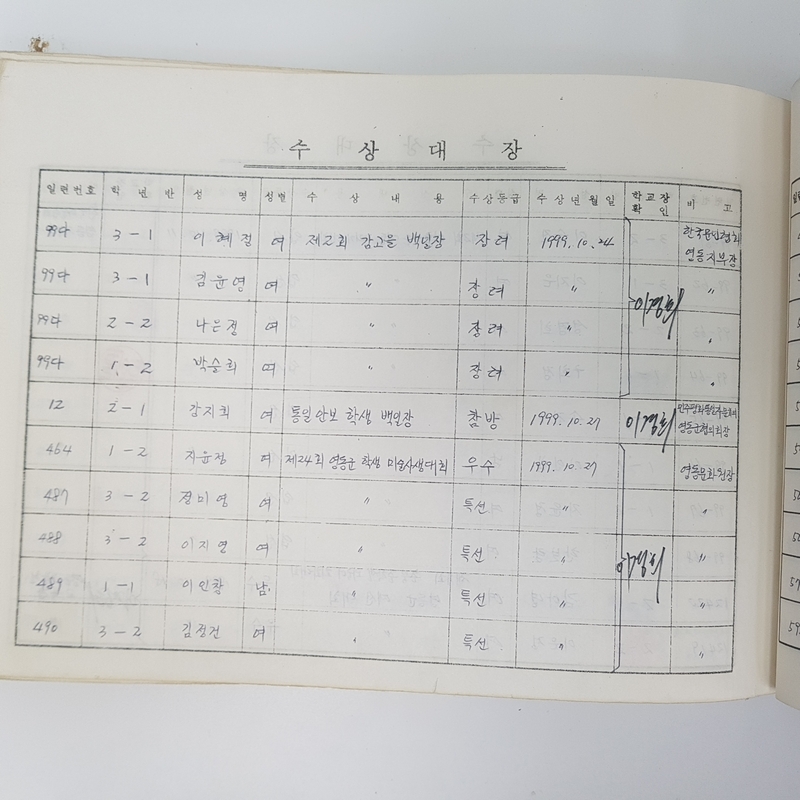 수 상 대 장
일련번호 학 년 반 성 명 성별 수 상 내 용 수상등급 수 상 년 월 일 학교장 확 인 비 고
99다 3-1 이혜정 여 제2회 감고을 백일장 장려 1999. 10. 24 한국문인협회 영동지부장
99다 3-1 김윤영 여 〃 장려 〃 〃
99다 2-2 나은정 여 〃 장려 〃 〃
99다 1-2 박승희 여 〃 장려 〃 〃
12 2-1 강지희 여 통일안보 학생 백일장 참방 1999. 10. 27 영동군협의회장
464 1-2 지윤정 여 제24회 영동군 학생 미술사생대회 우수 1999. 10. 27 영동문화원장
487 3-2 정미영 여 〃 특선 〃 〃
488 3-2 이지연 여 〃 특선 〃 〃
489 1-1 이인창 남 〃 특선 〃 〃
490 3-2 김정건 여 〃 특선 〃 〃